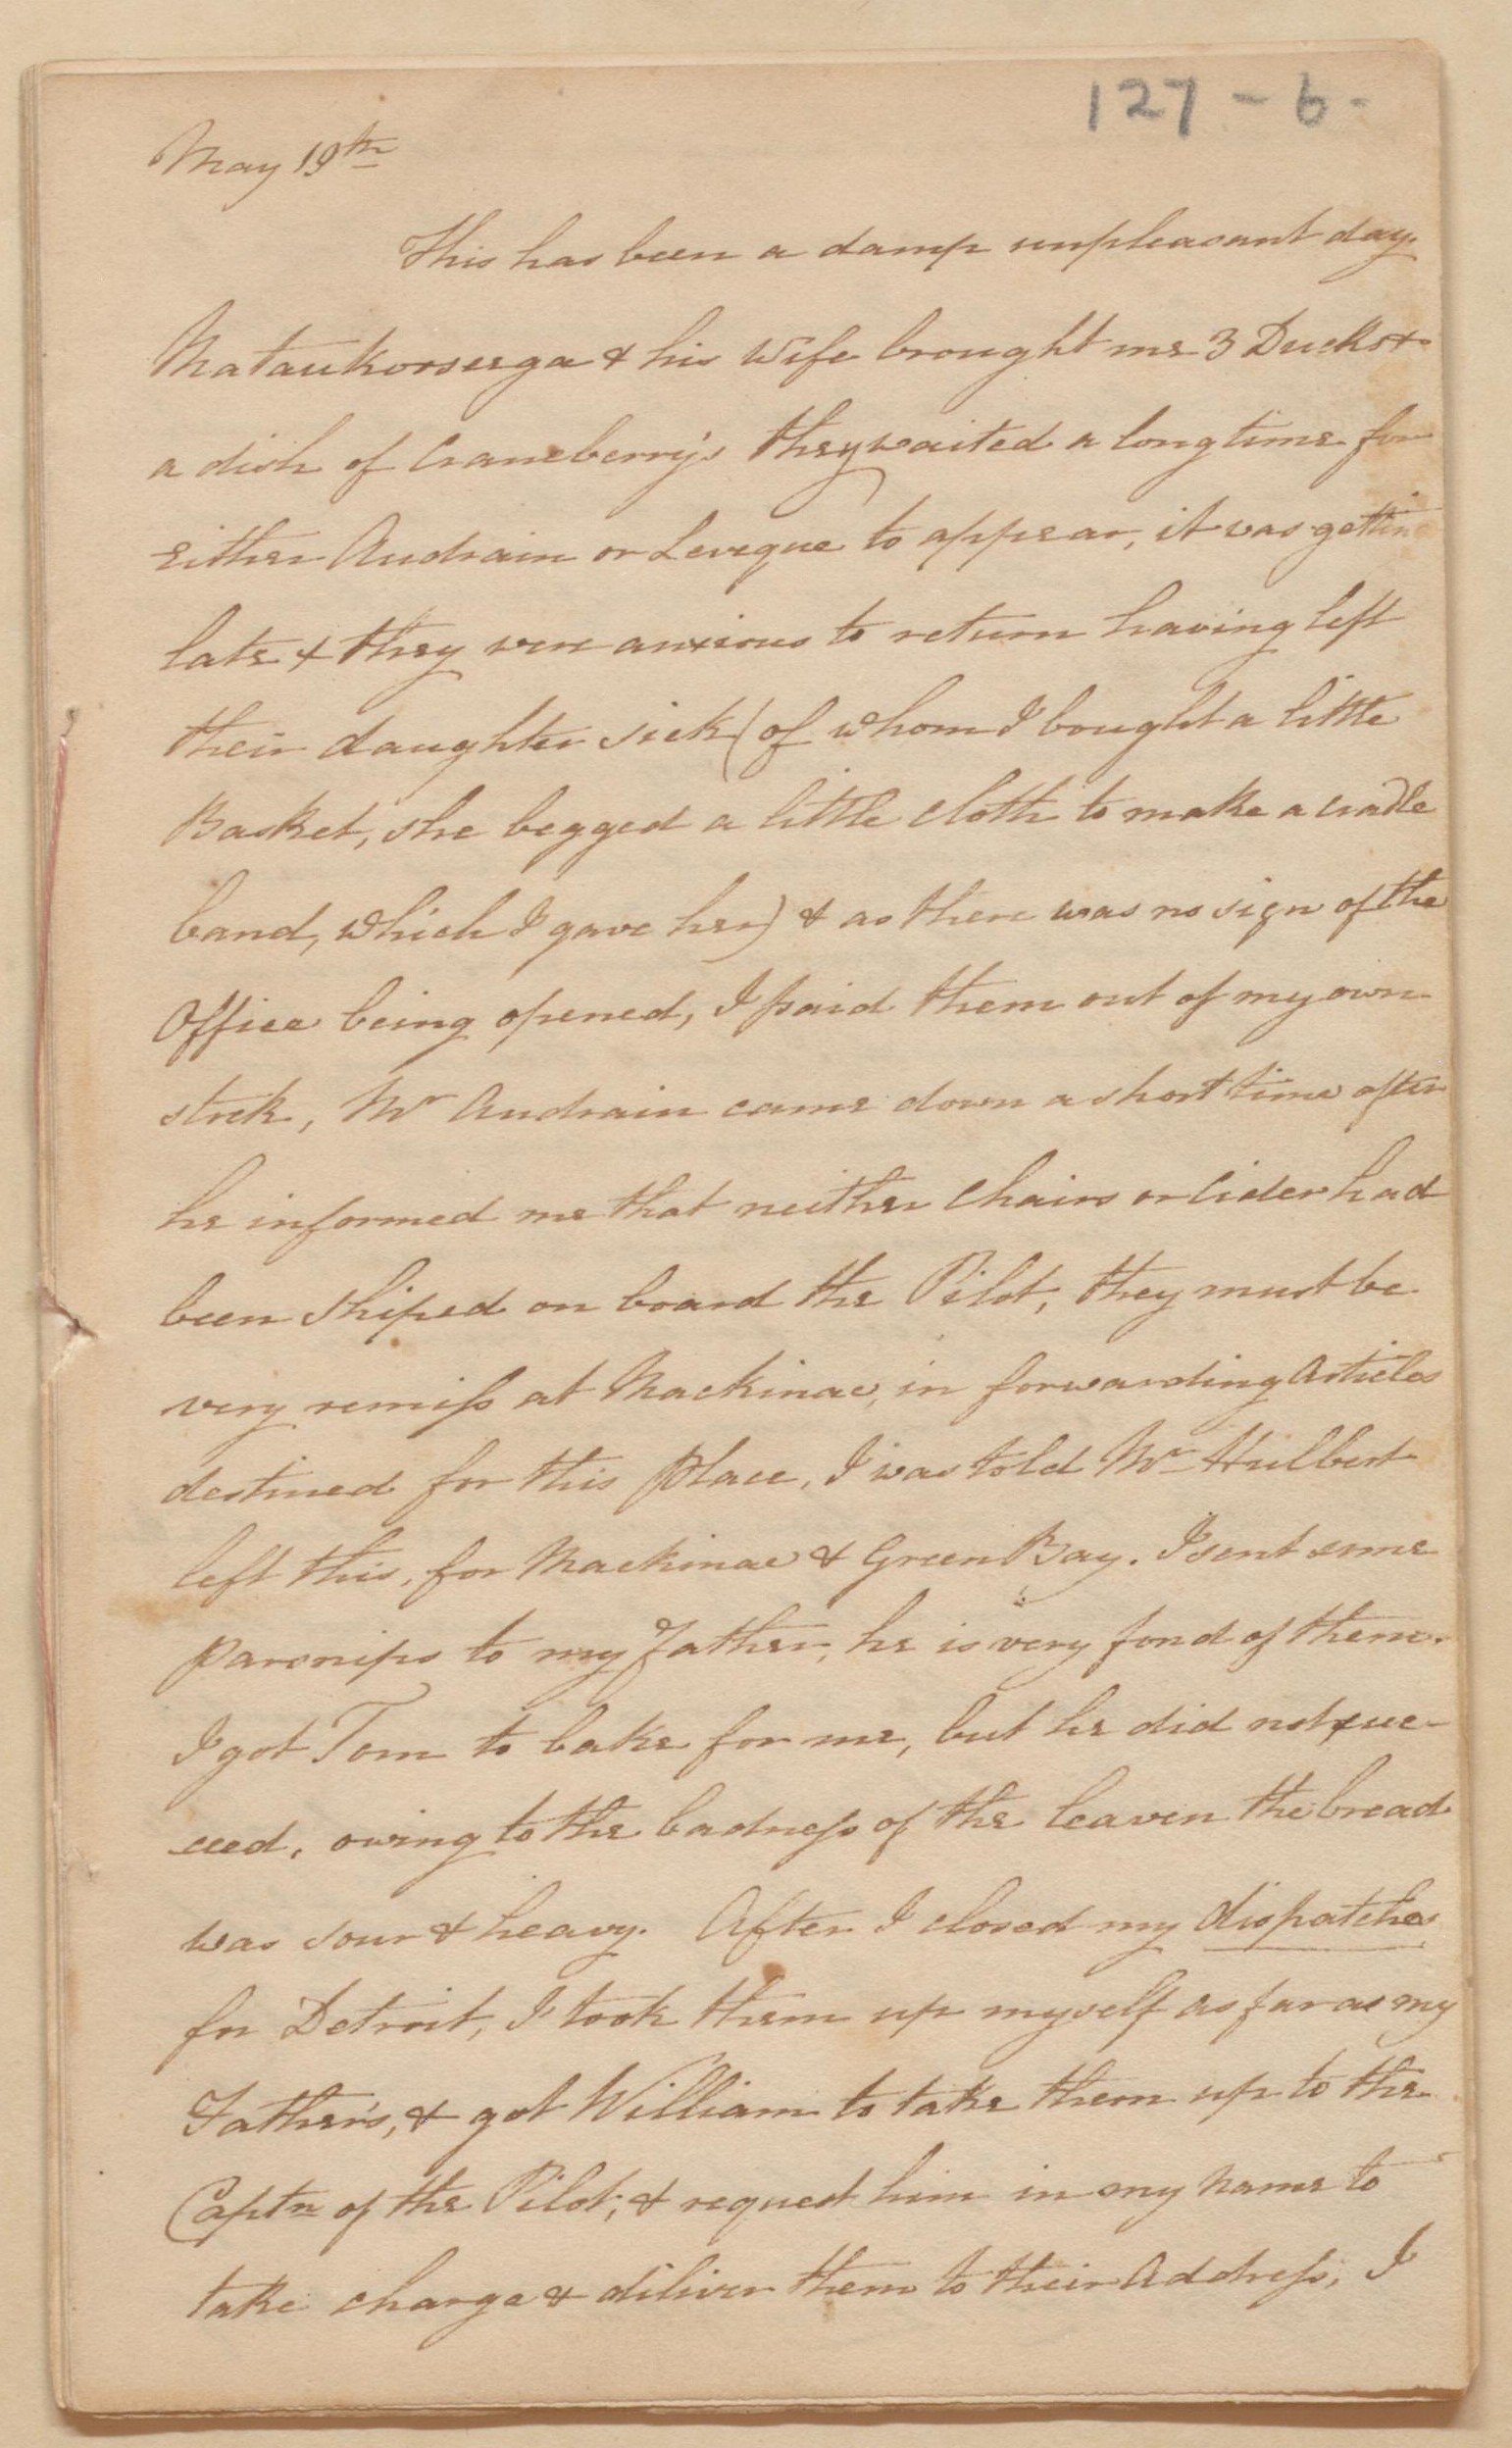 127-6-
May 19th
This has been a damp unpleasant day.
Mataukorsega & his Wife brought me 3 Ducks &
a dish of Craneberry's they waited a long time for
either Audrain or Leveque to appear, it was getting
late & they were anxious to return having left
their daughter sick (of whom I bought a little
Basket, she begged a little cloth to make a cradle
band, which I gave her) & as there was no sign of the
Office being opened, I paid them out of my own
stock, Mr Audrain came down a short time after
he informed me that neither Chairs or Cider had
been Shiped on board the Pilot, they must be
very remiss at Mackinac, in forwarding Articles
destined for this Place, I was told Mr Hulbert
left this, for Mackinac & Green Bay. I sent some
Parsnips to my Father, he is very fond of them.
I got Tom to bake for me, but he did not suc-
ceed, owing to the badness of the leaven the bread
was sour & heavy. After I closed my dispatches
for Detroit, I took them up myself as far as my
Father's, & got William to take them up to the
Captn of the Pilot, & request him in my Name to
take charge & diliver them to their Address, I